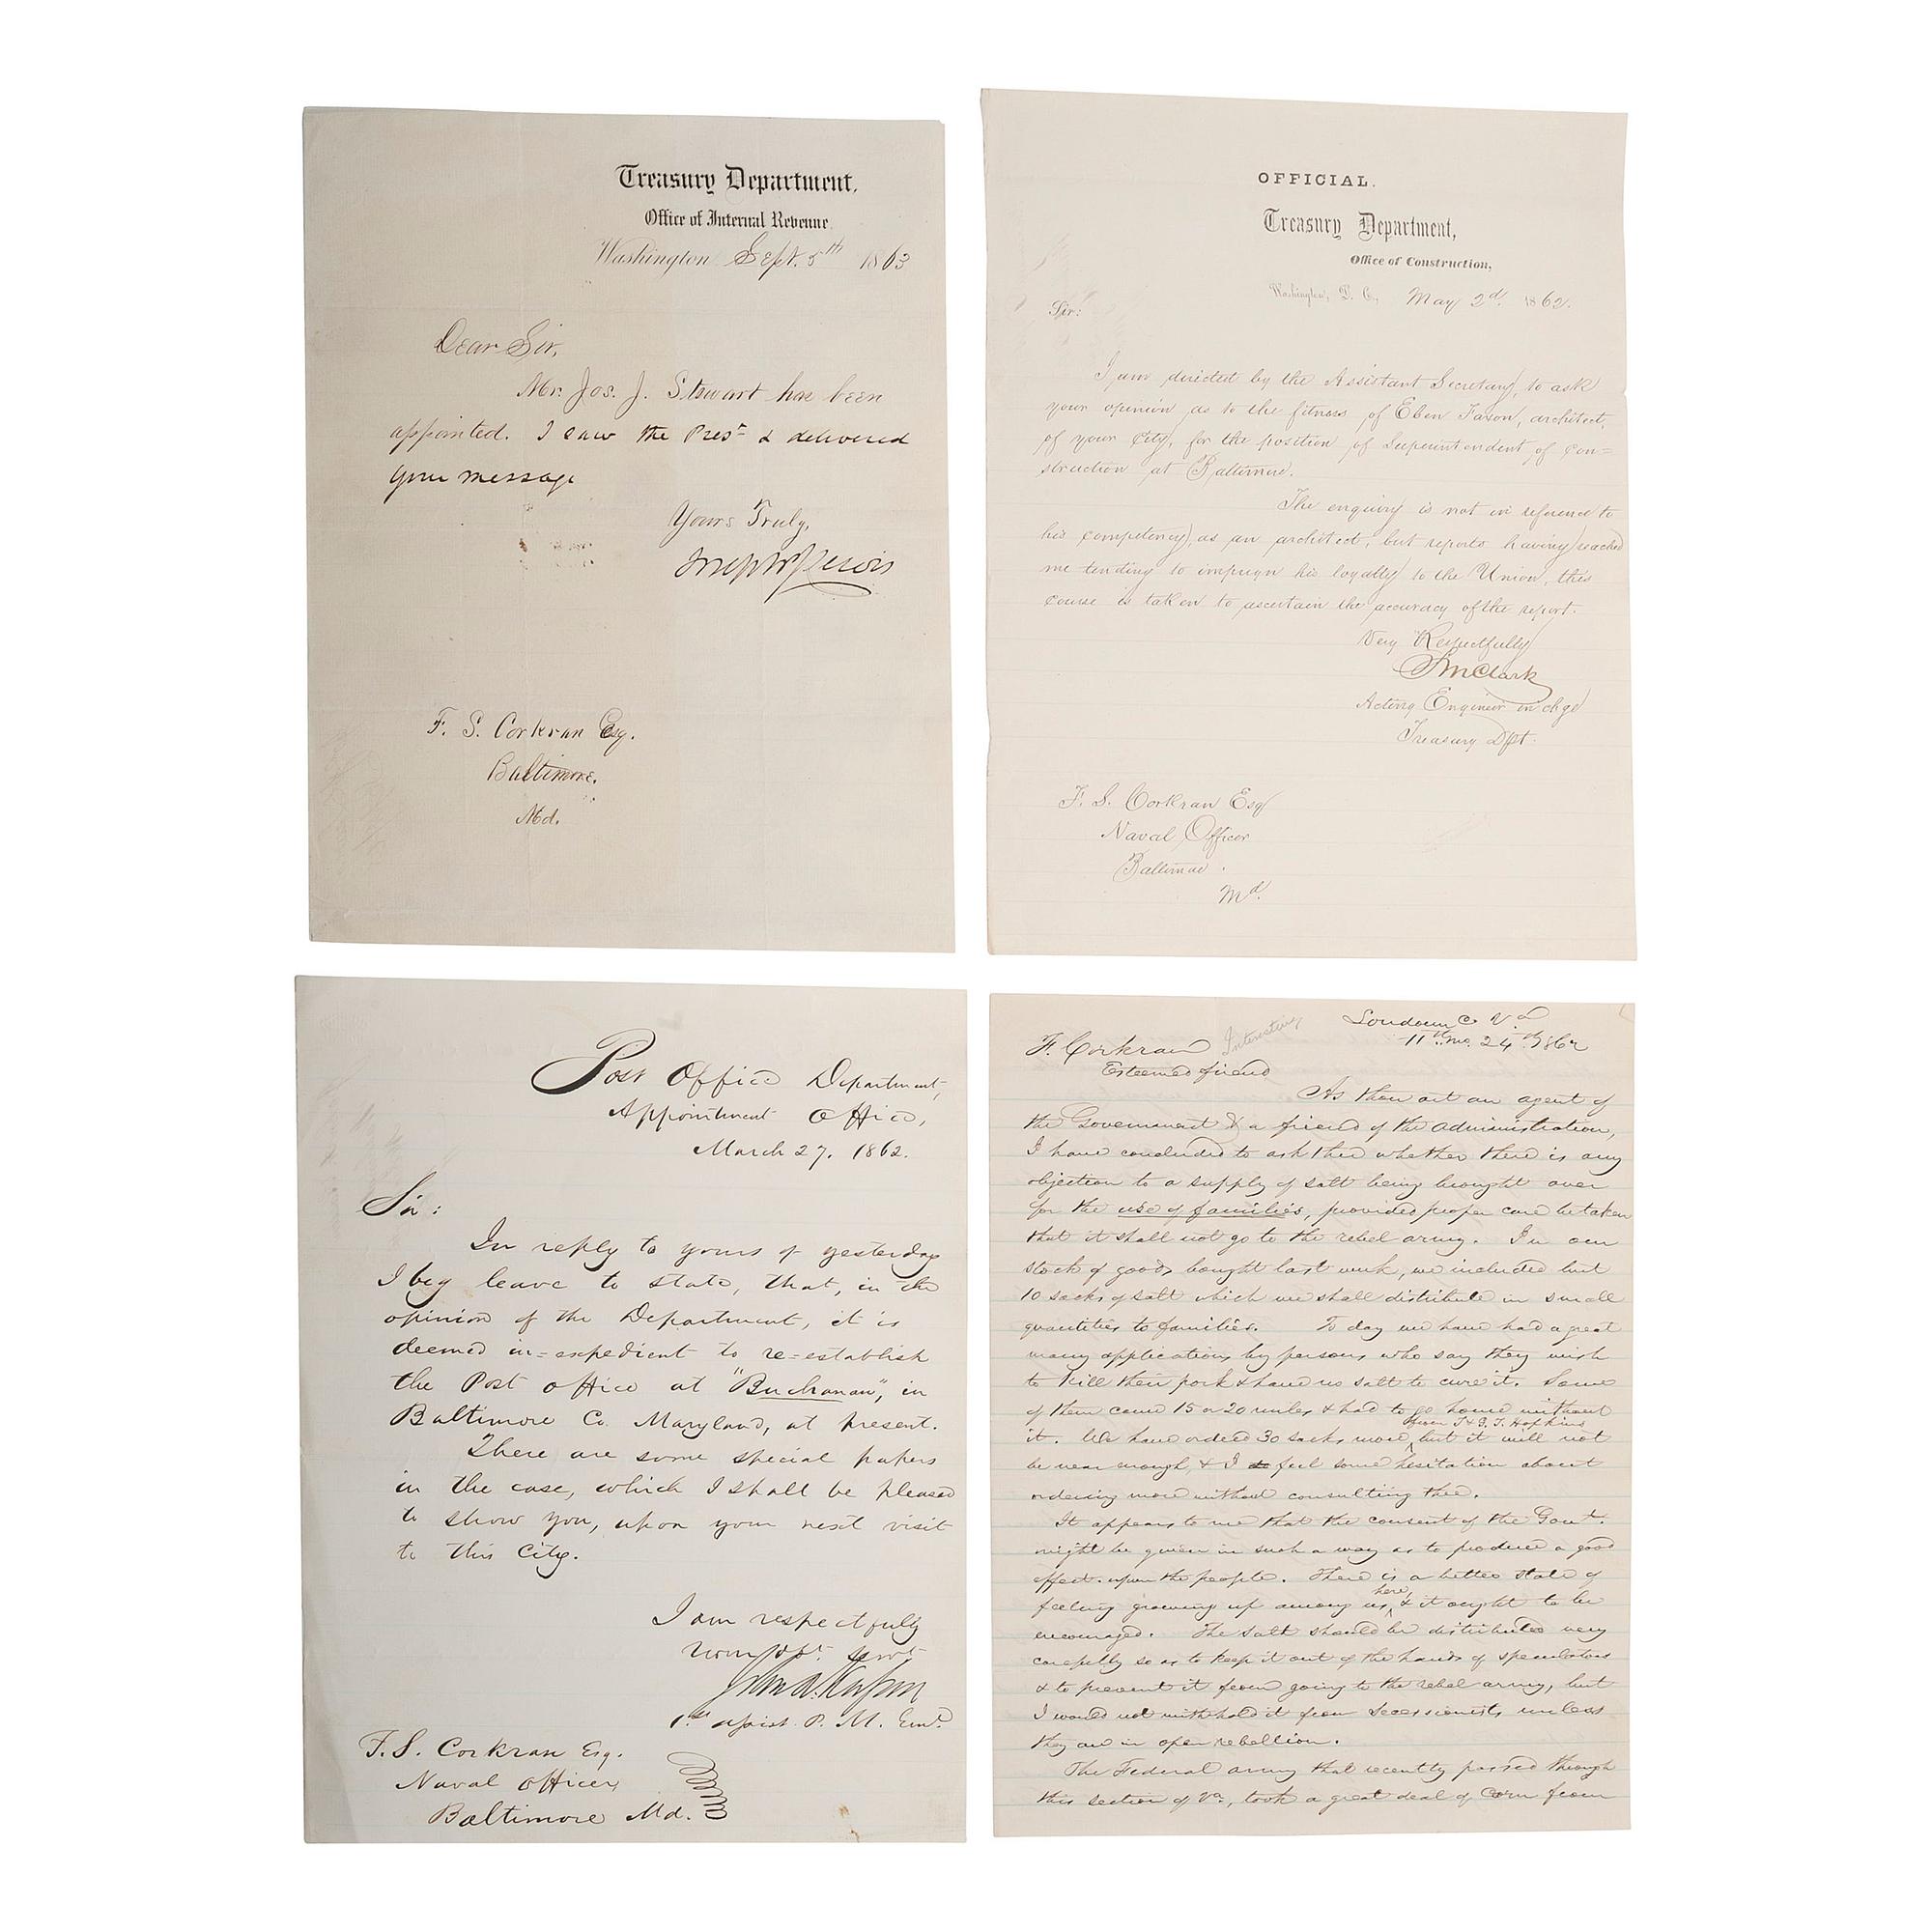 Treasury Department,
Office of Internal Revenue
Washington Sept. 5th 1863
Dear Sir,
Mr. Jos. J. Stewart has been
appointed. I saw the Prest & delivered
your message
Yours Truly,
F. S. Corkran Esq.
Baltimore.
Md.
OFFICIAL.
Treasury Department,
Office of Construction,
Washington, D. C., May 2d 1862.
Sir:
I am directed by the Assistant Secretary, to ask
your opinion as to the fitness of Eben Faxon, architect,
of your City, for the position of Superintendent of Con=
struction at Baltimore.
The enquiry is not in reference to
his competency, as an architect, but reports having reached
me tending to impugn his loyalty to the Union, this
course is taken to ascertain the accuracy of the report.
Very Respectfully
S M Clark
Acting Engineer in chge
Treasury Dpt.
F. S. Corkran Esq
Naval Officer
Baltimore.
Md.
Post Office Department,
Appointment Office,
March 27, 1862.
Sir:
In reply to yours of yesterday
I beg leave to state, that, in the
opinion of the Department, it is
deemed in=expedient to re=establish
the Post office at "Buchanan", in
Baltimore Co. Maryland, at present.
There are some special papers
in the case, which I shall be pleased
to show you, upon your next visit
to this City.
I am respectfully
your obt. servt
1st assist. P. M. Genl
F. S. Corkran Esq.
Naval officer
Baltimore Md.
Loudoun Co Va
11th mo. 24th 1862
F. Corkran Interesting
Esteemed friend
As thou art an agent of
the Government & a friend of the administration,
I have concluded to ask thee whether there is any
objection to a supply of salt being brought over
for the use of families, provided proper care be taken
that it shall not go to the rebel army. In our
stock of goods bought last week, we included but
10 sacks of salt which we shall distribute in small
quantities to families. To day we have had a great
many applications by persons who say they wish
to kill their pork & have no salt to cure it. Some
of them came 15 or 20 miles & had to go home without
from J & G. T. Hopkins
it. We have ordered 30 sacks more, but it will not
be near enough, & I feel some hesitation about
ordering more without consulting thee.
It appears to me that the consent of the Govt.
might be given in such a way as to produce a good
effect upon the people. There is a better state of
here,
feeling growing up among us, & it ought to be
encouraged. The salt should be distributed very
carefully so as to keep it out of the hands of speculators
& to prevent it from going to the rebel army, but
I would not withhold it from Secessionists unless
they are in open rebellion.
The Federal army that recently passed through
this section of Va., took a great deal of Corn from